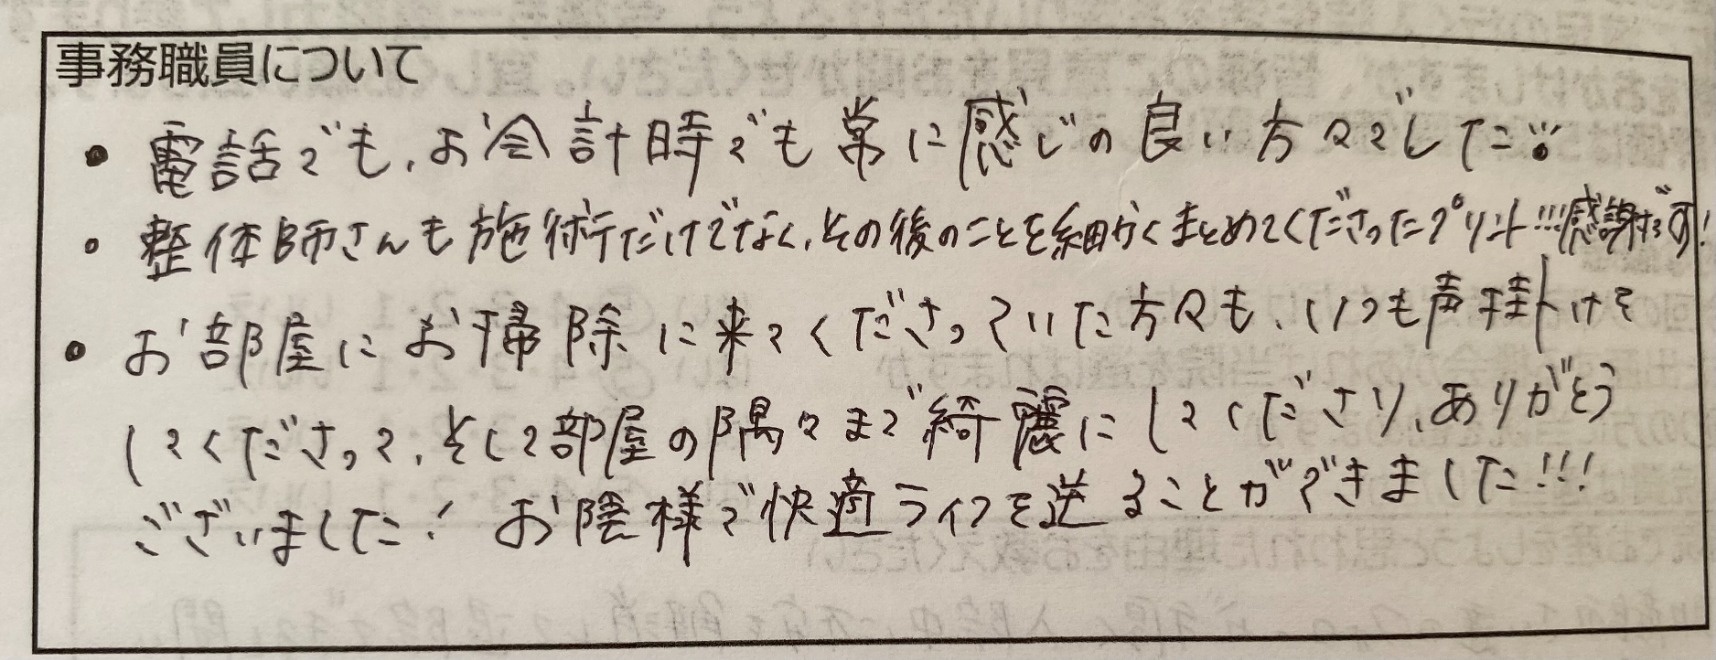 事務職員について
・電話でも、お会計時でも常に感じの良い方々でした!!
・整体師さんも施術だけでなく、その後のことを細かくまとめてくださったプリント!!!感謝です!
・お部屋にお掃除に来てくださっていた方々も、いつも声掛けを
してくださって、そして部屋の隅々まで綺麗にしてくださり、ありがとう
ございました! お陰様で快適ライフを送ることができました!!!